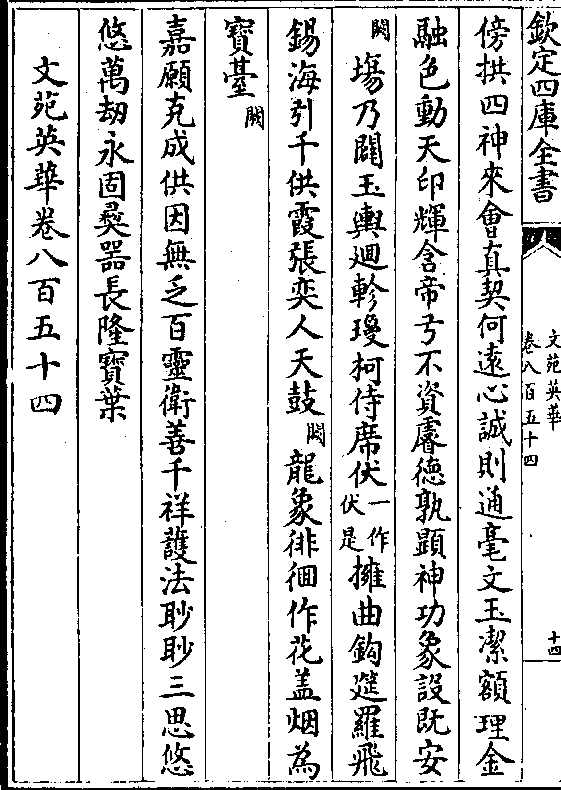 欽定四庫全書
文苑英華
卷八百五十四
十四
傍拱四神來會真契何遠心誠則通毫文玉潔額理金
融色動天印輝含帝弓不資睿德孰顯神功象設既安
闕塲乃闢玉輿廻軫瓊柯侍席伏一作伏是擁曲鉤筵羅飛
錫海引千供霞張奕人天鼓闕龍象徘徊作花盖烟為
寳䑓闕
嘉願克成供因無乏百靈衛善千祥䕶法眇眇三思悠
悠萬劫永固彛器長隆寳葉
文苑英華卷八百五十四